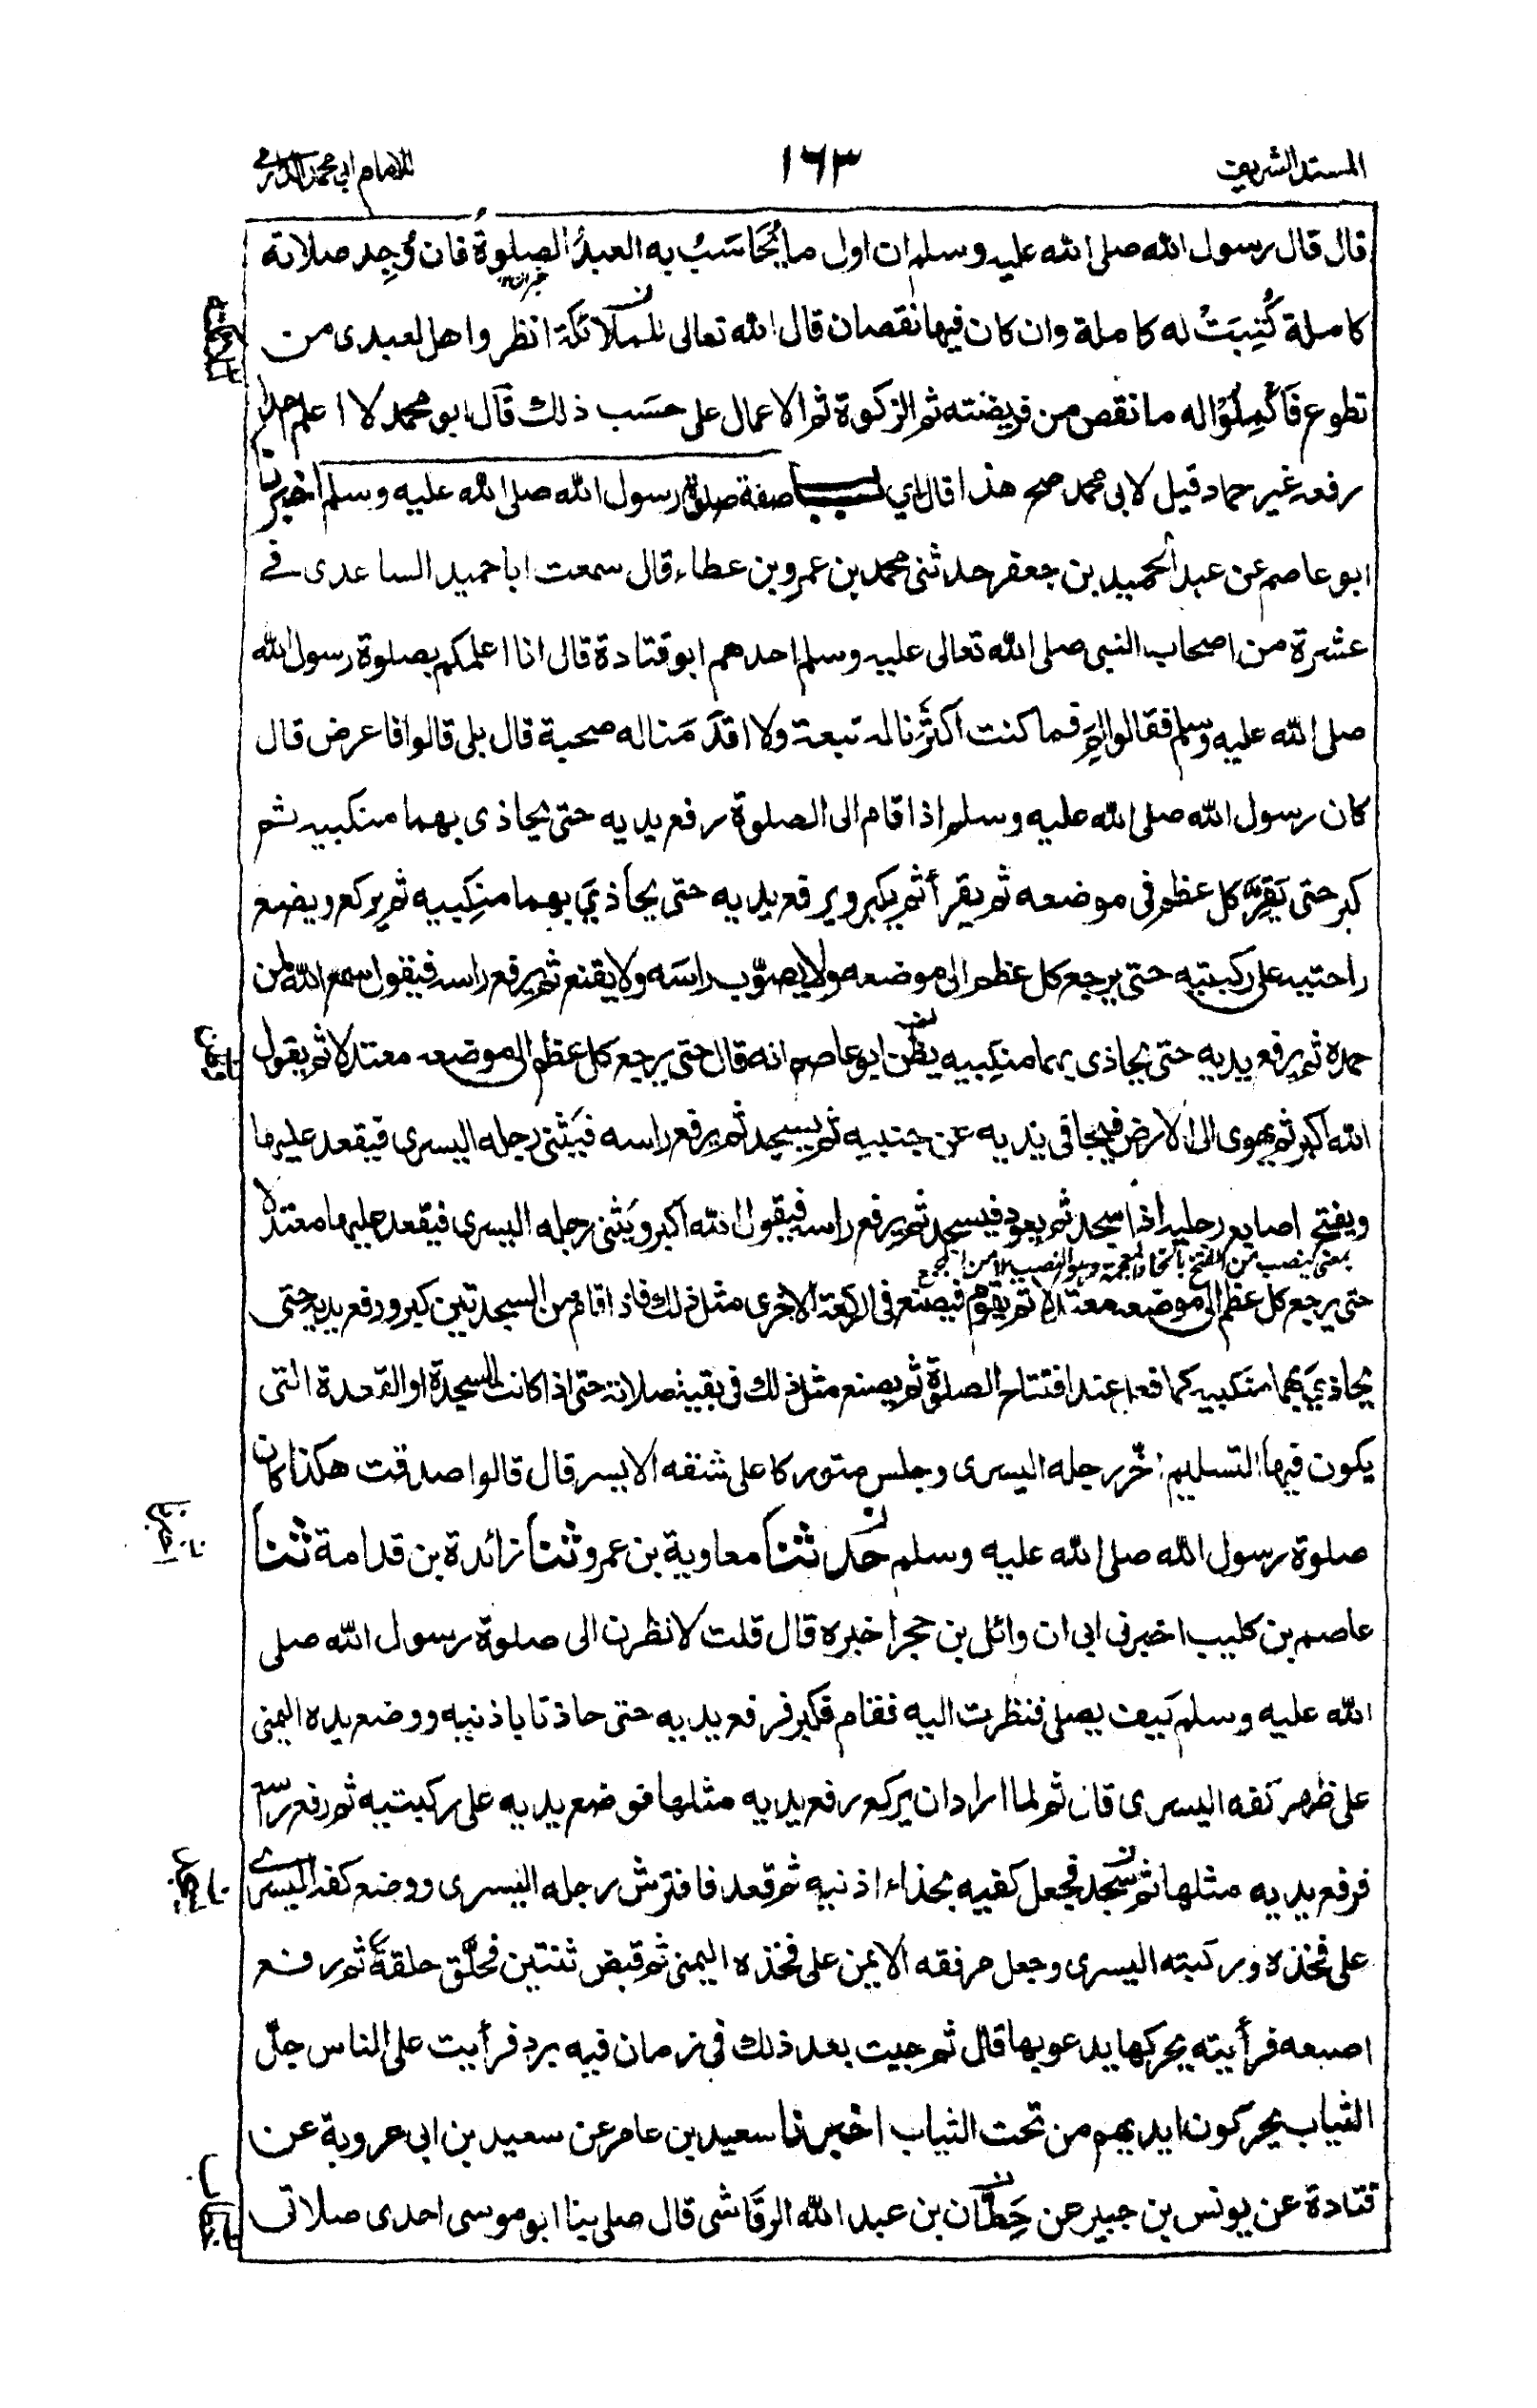 المسند الشريف ١٦٣ للامام ابي محمد الدارمي
قال قال رسول الله صلى الله عليه وسلم ان اول ما يُحَاسَبُ به العبدُ الصلوةُ فان وُجِد صلاته
كاملة كُتِبَتْ له كاملة وان كان فيها نقصان قال الله تعالى للملائكة انظروا هل لعبدى من
تطوع فَاَكْمِلُوْا له ما نقص من فريضته ثم الزكوة ثم الاعمال على حسَب ذلك قال ابو محمد لا اعلم احدا
رفعه غير حماد قيل لابى محمد صح هذا قال اي باب صفة صلوة رسول الله صلى الله عليه وسلم اخبرنا
ابو عاصم عن عبد الحميد بن جعفر حدثنى محمد بن عمرو بن عطاء قال سمعت ابا حميد الساعدى في
عشرة من اصحاب النبى صلى الله تعالى عليه وسلم احدهم ابو قتادة قال انا اعلمكم بصلوة رسول الله
صلى الله عليه وسلم فقالوا لِمَ فما كنت اكثرَنا له تبعة ولا اقدَمَنا له صحبة قال بلى قالوا فاعرض قال
كان رسول الله صلى الله عليه وسلم اذا قام الى الصلوة رفع يديه حتى يحاذى بهما منكبيه ثم
كبر حتى يَقِرّ كل عظم فى موضعه ثم يقرأ ثم يكبر ويرفع يديه حتى يحاذيَ بهما منكِبيه ثم يركع ويضع
راحتيه على ركبتيه حتى يرجع كل عظم الى موضعه ولا يصوّب راسَه ولا يقنع ثم يرفع راسه فيقول سمع الله لمن
حمده ثم يرفع يديه حتى يحاذى بهما منكِبيه يظن ابو عاصم انه قال حتى يرجع كل عظم الى موضعه معتدلا ثم يقول
الله اكبر ثم يهوى الى الارض فيجافى يديه عن جنبيه ثم يسجد ثم يرفع راسه فيَثنى رجله اليسرى فيقعد عليها
ويفتح اصابع رجليه اذا سجد ثم يعود فيسجد ثم يرفع راسه فيقول الله اكبر ويَثنى رجله اليسرى فيقعد عليها معتدلا
حتى يرجع كل عظم الى موضعه معتدلا ثم يقوم فيصنع فى الركعة الاخرى مثل ذلك فاذا قام من السجدتين كبر ورفع يديه حتى
يحاذيَ بهما منكبيه كما فعل عند افتتاح الصلوة ثم يصنع مثل ذلك فى بقية صلاته حتى اذا كانت السجدة او القعدة التى
يكون فيها التسليم اخّر رجله اليسرى وجلس متوركا على شقه الايسر قال قالوا صدقت هكذا كان
صلوة رسول الله صلى الله عليه وسلم حدثنا معاوية بن عمرو ثنا زائدة بن قدامة ثنا
عاصم بن كليب اخبرنى ابى ان وائل بن حجر اخبره قال قلت لانظرن الى صلوة رسول الله صلى
الله عليه وسلم كيف يصلى فنظرت اليه فقام فكبر فرفع يديه حتى حاذتا باذنيه ووضع يده اليمنى
على ظهر كفه اليسرى قال ثم لما اراد ان يركع رفع يديه مثلها فوضع يديه على ركبتيه ثم رفع راسه
فرفع يديه مثلها ثم سجد فجعل كفيه بحذاء اذنيه ثم قعد فافترش رجله اليسرى ووضع كفه اليسرى
على فخذه وركبته اليسرى وجعل مرفقه الايمن على فخذه اليمنى ثم قبض ثنتين فحلّق حلقة ثم رفع
اصبعه فرأيته يحركها يدعو بها قال ثم جيت بعد ذلك فى زمان فيه برد فرأيت على الناس جلّ
الثياب يحركون ايديهم من تحت الثياب اخبرنا سعيد بن عامر عن سعيد بن ابى عروبة عن
قتادة عن يونس بن جبير عن حِطّان بن عبد الله الرقاشى قال صلى بنا ابو موسى احدى صلاتى